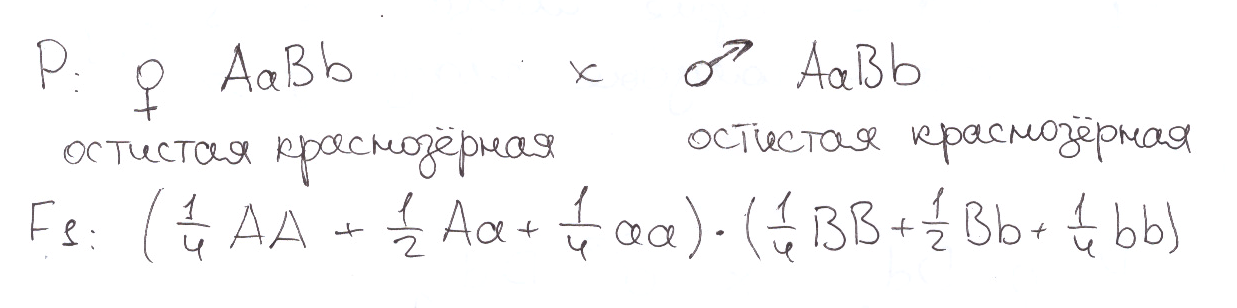 P: ♀ AaBb x ♂ AaBb
остистая краснозёрная остистая краснозёрная
F1: (1/4 AA + 1/2 Aa + 1/4 aa) · (1/4 BB + 1/2 Bb + 1/4 bb)